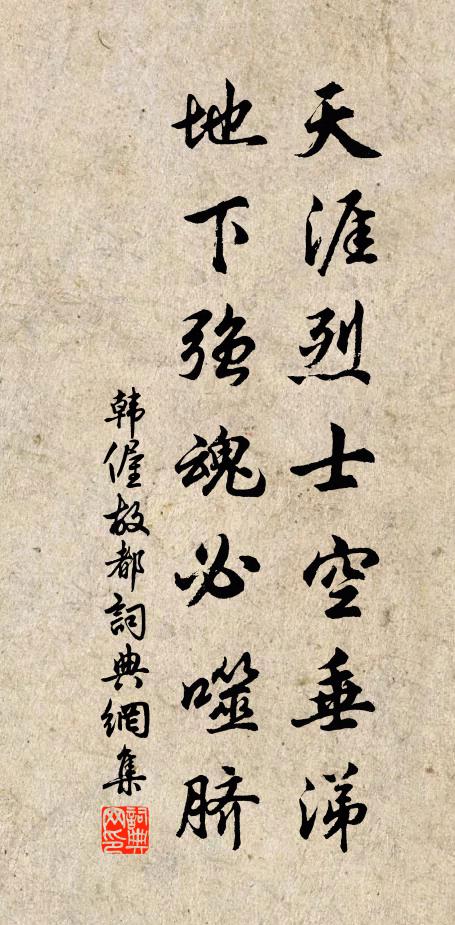 天涯烈士空垂涕
地下強魂必噬脐
韩偓故都詞典網集
詞典网印